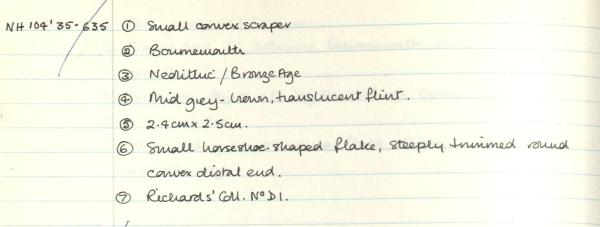 NH 104'35-635 ① Small convex scraper
② Bournemouth
③ Neolithic / Bronze Age
④ Mid grey-brown, translucent flint.
⑤ 2.4cm x 2.5cm.
⑥ Small horseshoe-shaped flake, steeply trimmed round
convex distal end.
⑦ Richards' Coll. Nº D1.